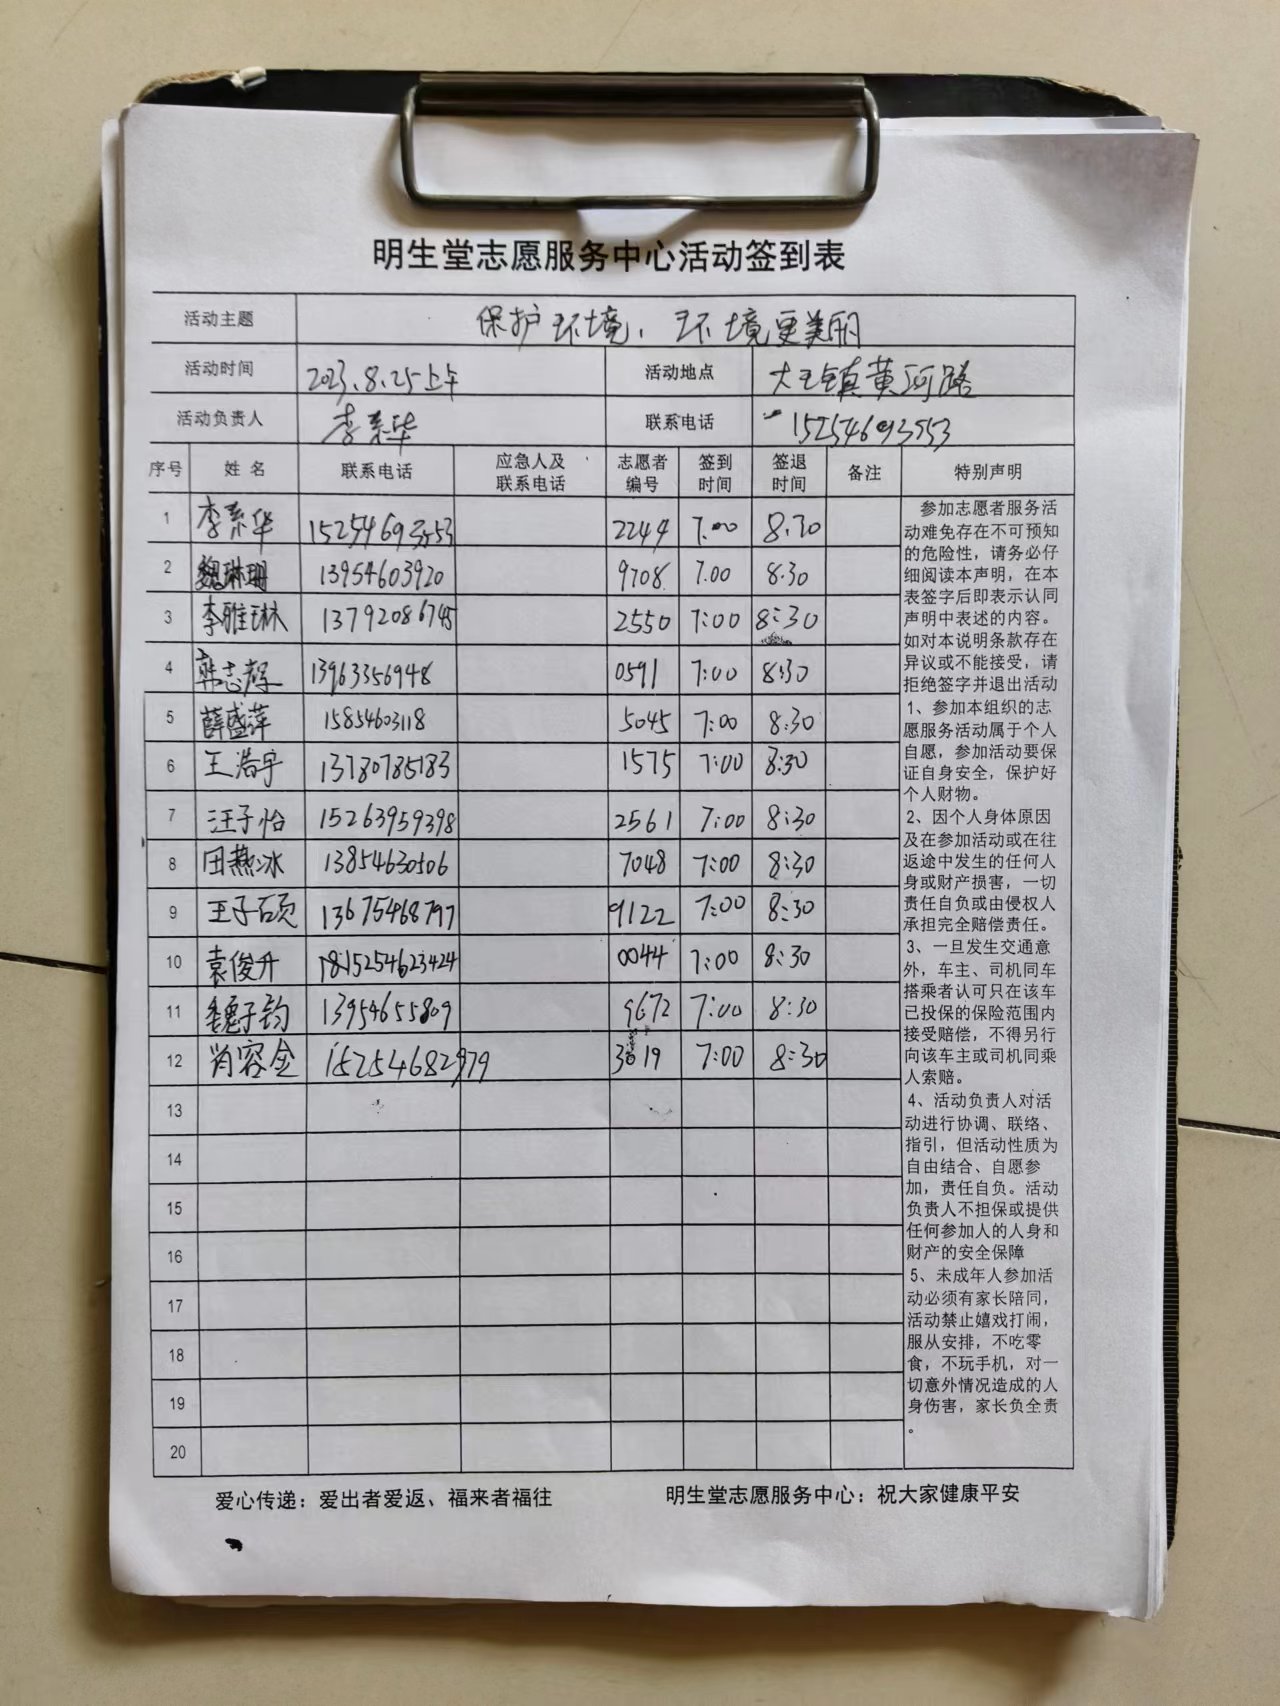 明生堂志愿服务中心活动签到表
活动主题 保护环境、环境更美丽
活动时间 2023.8.25上午 活动地点 大王镇黄河路
活动负责人 李素华 联系电话 15254693553
序号 姓名 联系电话 应急人及联系电话 志愿者编号 签到时间 签退时间 备注 特别声明
1 李素华 15254693553 2244 7:00 8:30
2 魏琳珊 13954603920 9708 7.00 8.30
3 李雅琳 13792086745 2550 7:00 8:30
4 韩志辉 13963356948 0591 7:00 8:30
5 薛盛萍 15854603118 5045 7:00 8:30
6 王浩宇 13780785183 1575 7:00 8:30
7 汪子怡 15263959398 2561 7:00 8:30
8 田燕冰 13854630506 7048 7:00 8:30
9 王子硕 13675468797 9122 7:00 8:30
10 袁俊升 15254623424 0044 7:00 8:30
11 魏子钧 13954655809 9672 7:00 8:30
12 肖容金 15254682979 7:00 8:30
13
14
15
16
17
18
19
20
参加志愿者服务活
动难免存在不可预知
的危险性，请务必仔
细阅读本声明，在本
表签字后即表示认同
声明中表述的内容。
如对本说明条款存在
异议或不能接受，请
拒绝签字并退出活动
1、参加本组织的志
愿服务活动属于个人
自愿，参加活动要保
证自身安全，保护好
个人财物。
2、因个人身体原因
及在参加活动或在往
返途中发生的任何人
身或财产损害，一切
责任自负或由侵权人
承担完全赔偿责任。
3、一旦发生交通意
外，车主、司机同车
搭乘者认可只在该车
已投保的保险范围内
接受赔偿，不得另行
向该车主或司机同乘
人索赔。
4、活动负责人对活
动进行协调、联络、
指引，但活动性质为
自由结合、自愿参
加，责任自负。活动
负责人不担保或提供
任何参加人的人身和
财产的安全保障
5、未成年人参加活
动必须有家长陪同，
活动禁止嬉戏打闹，
服从安排，不吃零
食，不玩手机，对一
切意外情况造成的人
身伤害，家长负全责
。
爱心传递：爱出者爱返、福来者福往 明生堂志愿服务中心：祝大家健康平安